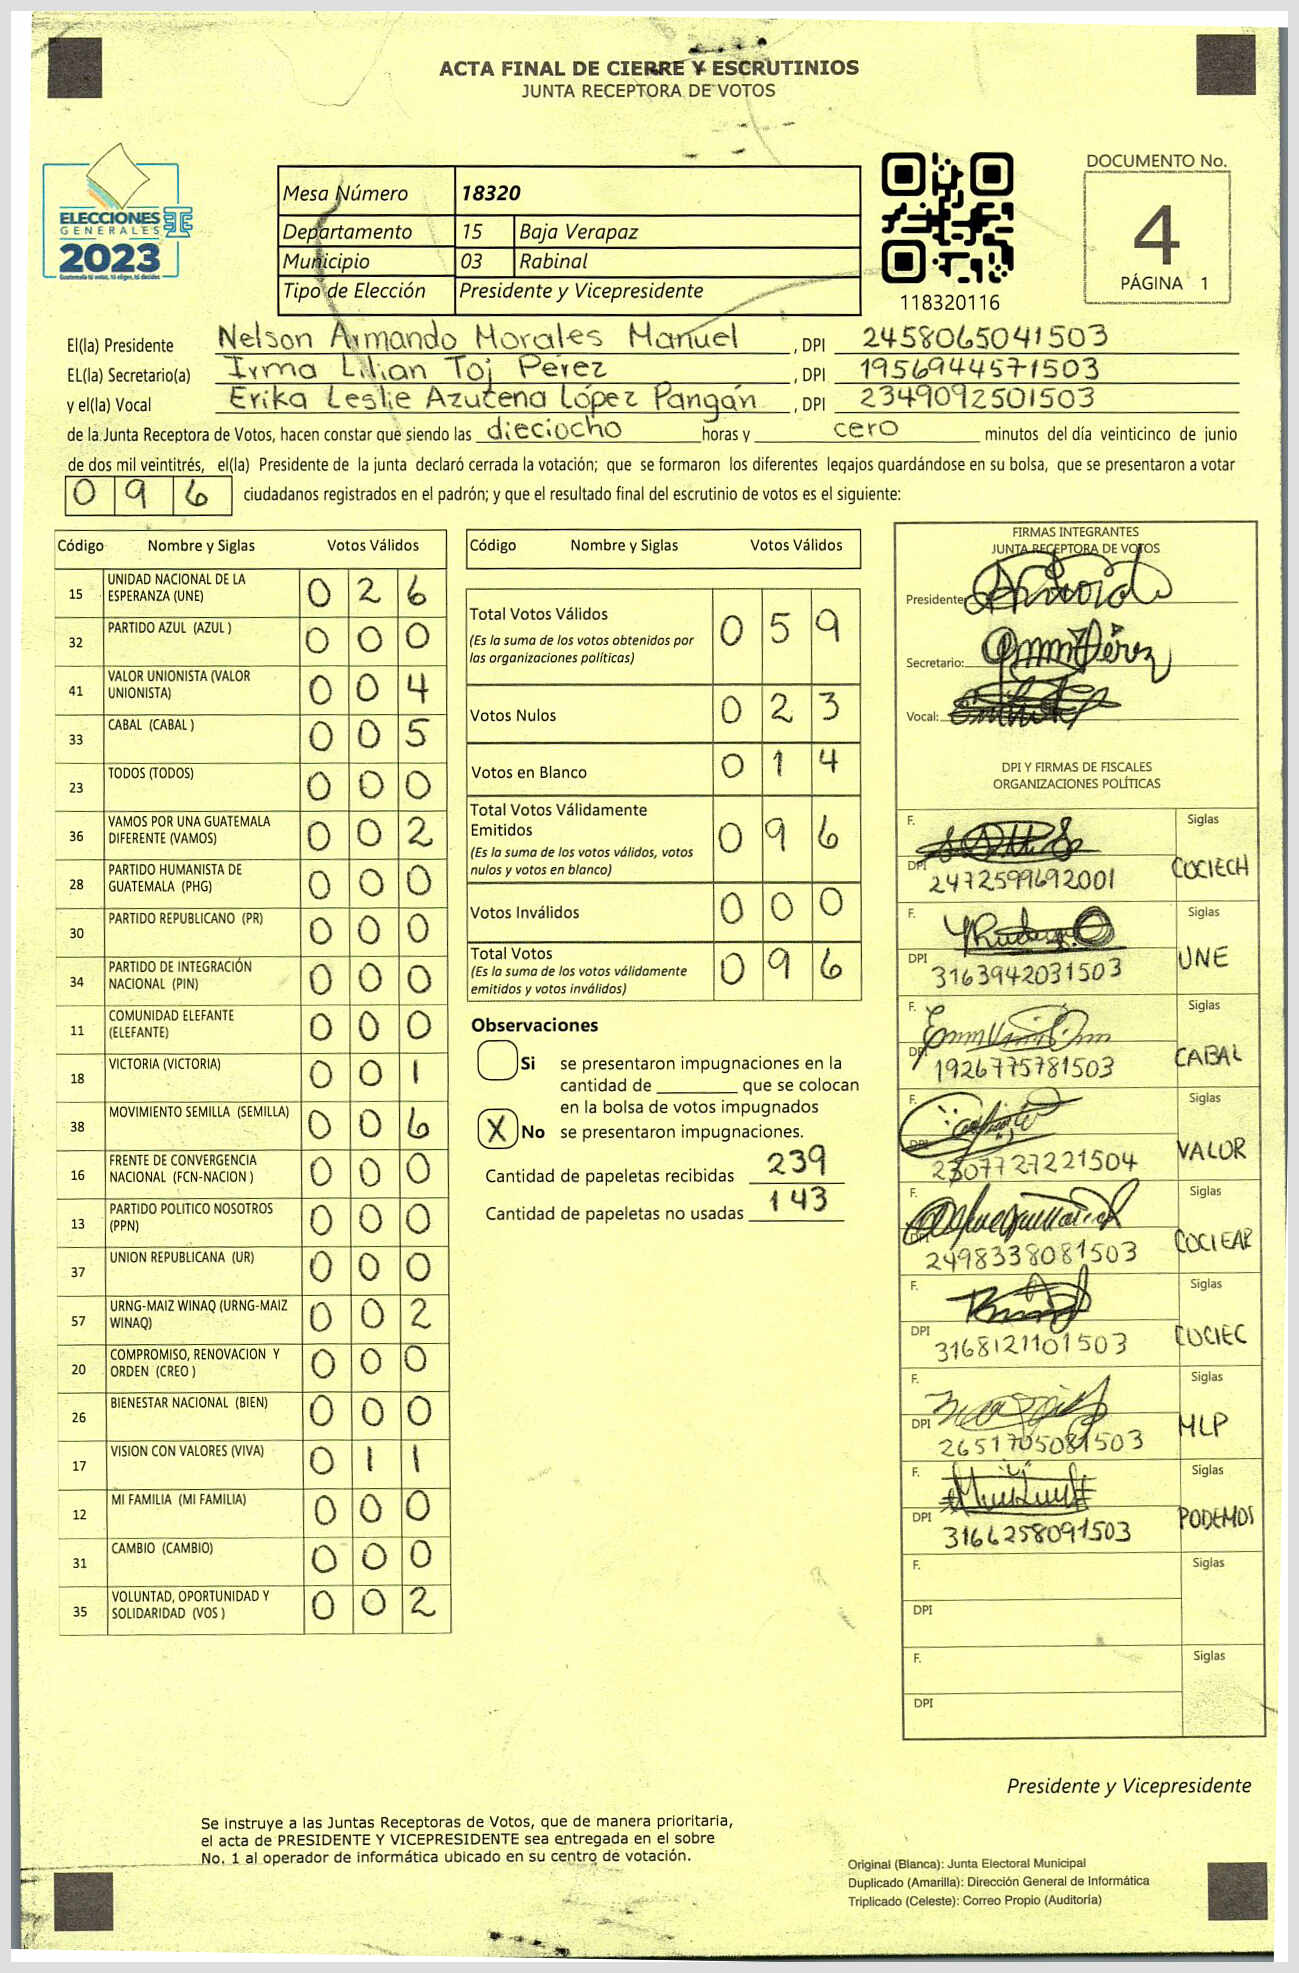 ACTA FINAL DE CIERRE Y ESCRUTINIOS
JUNTA RECEPTORA DE VOTOS
ELECCIONES
GENERALES
2023
Mesa Número 18320
Departamento 15 Baja Verapaz
Municipio 03 Rabinal
Tipo de Elección Presidente y Vicepresidente
118320116
DOCUMENTO No.
4
PÁGINA 1
El(la) Presidente Nelson Armando Morales Manuel , DPI 2458065041503
EL(la) Secretario(a) Irma Lilian Toj Pérez , DPI 1956944571503
y el(la) Vocal Erika Leslie Azucena López Pangán , DPI 2349092501503
de la Junta Receptora de Votos, hacen constar que siendo las dieciocho horas y cero minutos del día veinticinco de junio
de dos mil veintitrés, el(la) Presidente de la junta declaró cerrada la votación; que se formaron los diferentes legajos guardándose en su bolsa, que se presentaron a votar
096 ciudadanos registrados en el padrón; y que el resultado final del escrutinio de votos es el siguiente:
Código Nombre y Siglas Votos Válidos
15 UNIDAD NACIONAL DE LA ESPERANZA (UNE) 026
32 PARTIDO AZUL (AZUL ) 000
41 VALOR UNIONISTA (VALOR UNIONISTA) 004
33 CABAL (CABAL ) 005
23 TODOS (TODOS) 000
36 VAMOS POR UNA GUATEMALA DIFERENTE (VAMOS) 002
28 PARTIDO HUMANISTA DE GUATEMALA (PHG) 000
30 PARTIDO REPUBLICANO (PR) 000
34 PARTIDO DE INTEGRACIÓN NACIONAL (PIN) 000
11 COMUNIDAD ELEFANTE (ELEFANTE) 000
18 VICTORIA (VICTORIA) 001
38 MOVIMIENTO SEMILLA (SEMILLA) 006
16 FRENTE DE CONVERGENCIA NACIONAL (FCN-NACION ) 000
13 PARTIDO POLITICO NOSOTROS (PPN) 000
37 UNION REPUBLICANA (UR) 000
57 URNG-MAIZ WINAQ (URNG-MAIZ WINAQ) 002
20 COMPROMISO, RENOVACION Y ORDEN (CREO ) 000
26 BIENESTAR NACIONAL (BIEN) 000
17 VISION CON VALORES (VIVA) 011
12 MI FAMILIA (MI FAMILIA) 000
31 CAMBIO (CAMBIO) 000
35 VOLUNTAD, OPORTUNIDAD Y SOLIDARIDAD (VOS ) 002
Código Nombre y Siglas Votos Válidos
Total Votos Válidos 059
(Es la suma de los votos obtenidos por
las organizaciones políticas)
Votos Nulos 023
Votos en Blanco 014
Total Votos Válidamente
Emitidos 096
(Es la suma de los votos válidos, votos
nulos y votos en blanco)
Votos Inválidos 000
Total Votos 096
(Es la suma de los votos válidamente
emitidos y votos inválidos)
Observaciones
Si se presentaron impugnaciones en la
cantidad de ________ que se colocan
en la bolsa de votos impugnados
X No se presentaron impugnaciones.
Cantidad de papeletas recibidas 239
Cantidad de papeletas no usadas 143
FIRMAS INTEGRANTES
JUNTA RECEPTORA DE VOTOS
Presidente:
Secretario:
Vocal:
DPI Y FIRMAS DE FISCALES
ORGANIZACIONES POLÍTICAS
F. Siglas
DPI 2472599692001 COCIECH
F. Siglas
DPI 3163942031503 UNE
F. Siglas
DPI 1926775781503 CABAL
F. Siglas
DPI 2307727221504 VALOR
F. Siglas
DPI 2498338081503 COCIEAR
F. Siglas
DPI 3168121101503 COCIEC
F. Siglas
DPI 2651705081503 MLP
F. Siglas
DPI 3166258091503 PODEMOS
F. Siglas
DPI
F. Siglas
DPI
Presidente y Vicepresidente
Se instruye a las Juntas Receptoras de Votos, que de manera prioritaria,
el acta de PRESIDENTE Y VICEPRESIDENTE sea entregada en el sobre
No. 1 al operador de informática ubicado en su centro de votación.
Original (Blanca): Junta Electoral Municipal
Duplicado (Amarilla): Dirección General de Informática
Triplicado (Celeste): Correo Propio (Auditoría)